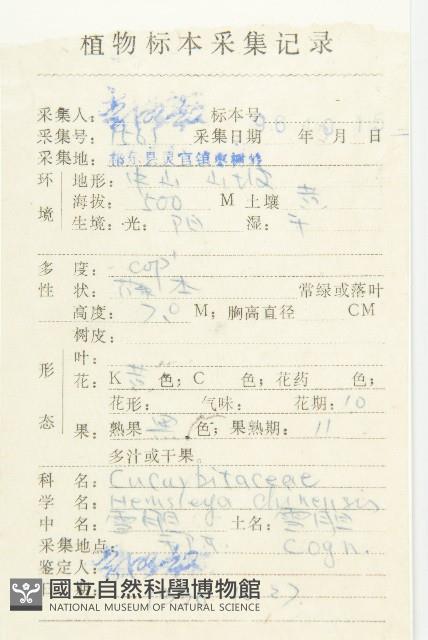 植物标本采集记录
采集人: 标本号
采集号: 采集日期 年 月 日
采集地: 祁东县灵官镇
环境 地形: 山坡
海拔: 500 M 土壤 黄
生境: 光: 阳 湿: 干
多 度: cop¹
性 状: 常绿或落叶
高度: 7.0 M; 胸高直径 CM
树皮:
形态 叶:
花: K 黄 色; C 色; 花药 色;
花形: 气味: 花期: 10
果: 熟果 黑 色; 果熟期: 11
多汁或干果。
科 名: Cucurbitaceae
学 名: Hemsleya chinensis
中 名: 雪胆 土名: 雪胆
采集地点: Cogn.
鉴定人:
日
國立自然科學博物館
NATIONAL MUSEUM OF NATURAL SCIENCE